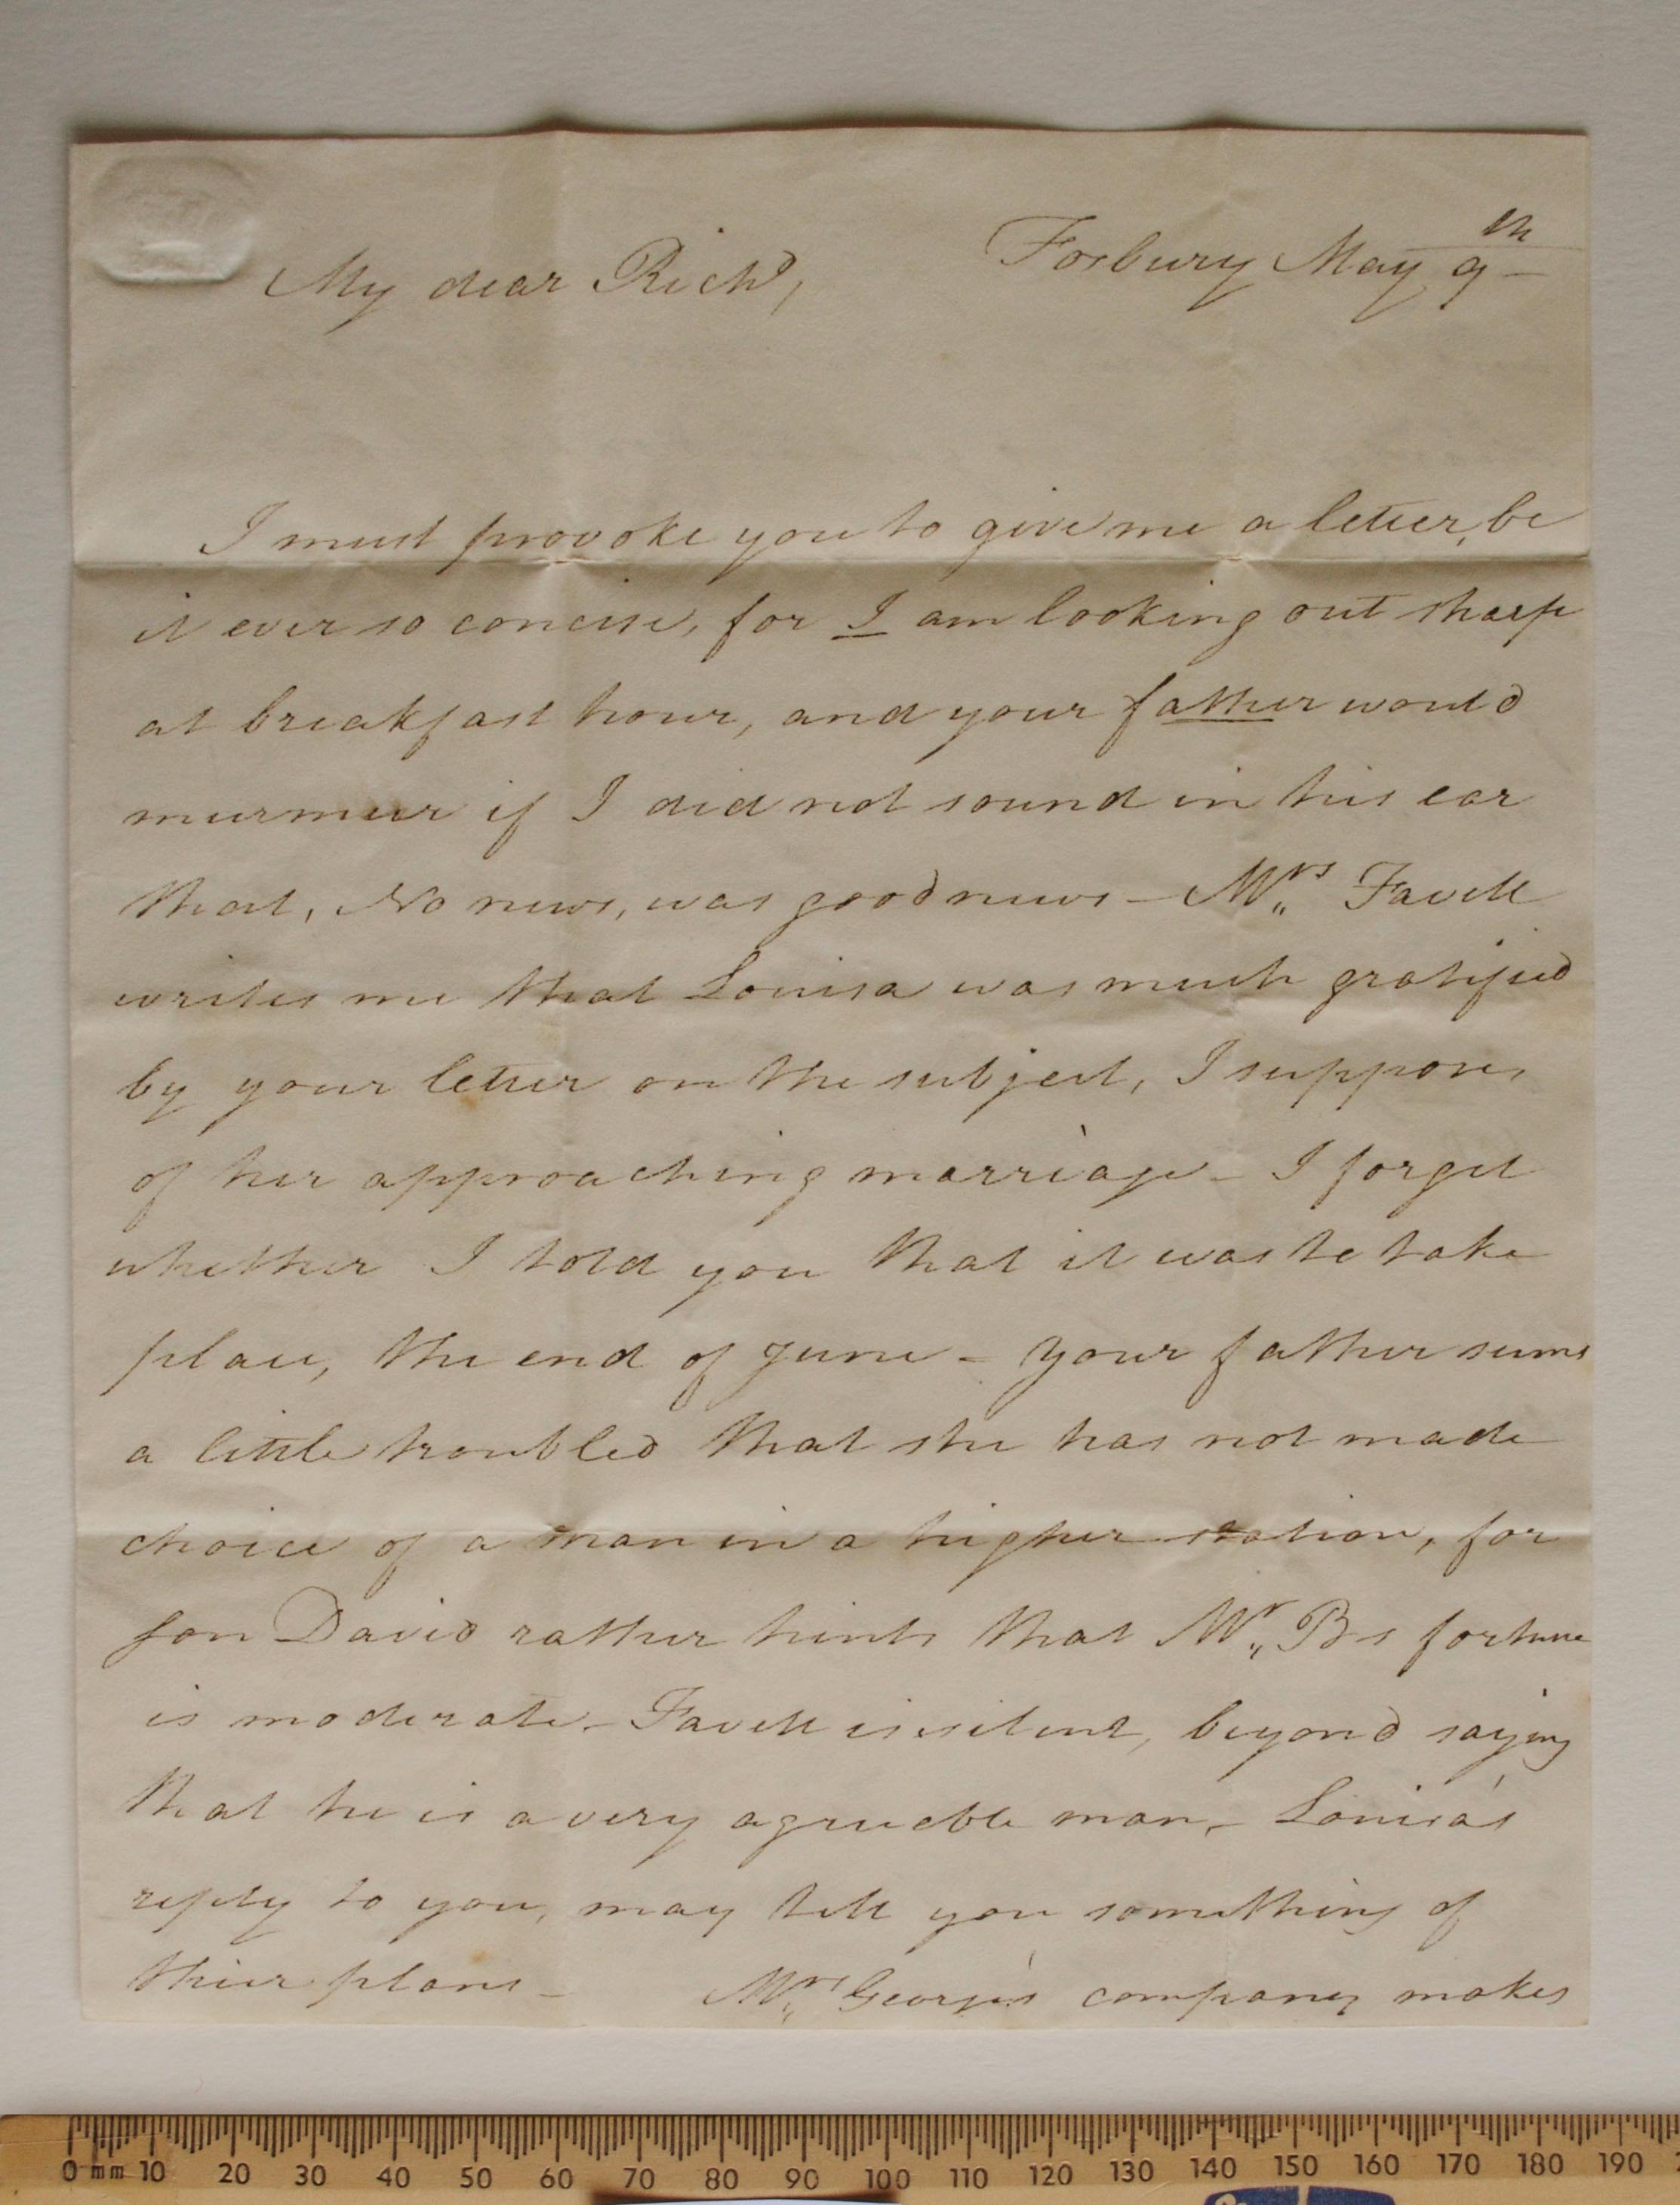 Forbury May 9th
My dear Richd,
I must provoke you to give me a letter, be
it ever so concise, for I am looking out sharp
at breakfast hour, and your father would
murmur if I did not sound in his ear
that, No news, was good news - Mrs Favell
writes me that Louisa was much gratified
by your letter on the subject, I suppose,
of her approaching marriage - I forget
whether I told you that it was to take
place, the end of June - your father seems
a little troubled that she has not made
choice of a man in a higher station, for
son David rather hints that Mr B-s fortune
is moderate - Favell is silent, beyond saying
that he is a very agrueeble man, - Louisa's
reply to you, may tell you something of
thier plans - Mrs George's company makes
0 mm 10 20 30 40 50 60 70 80 90 100 110 120 130 140 150 160 170 180 190